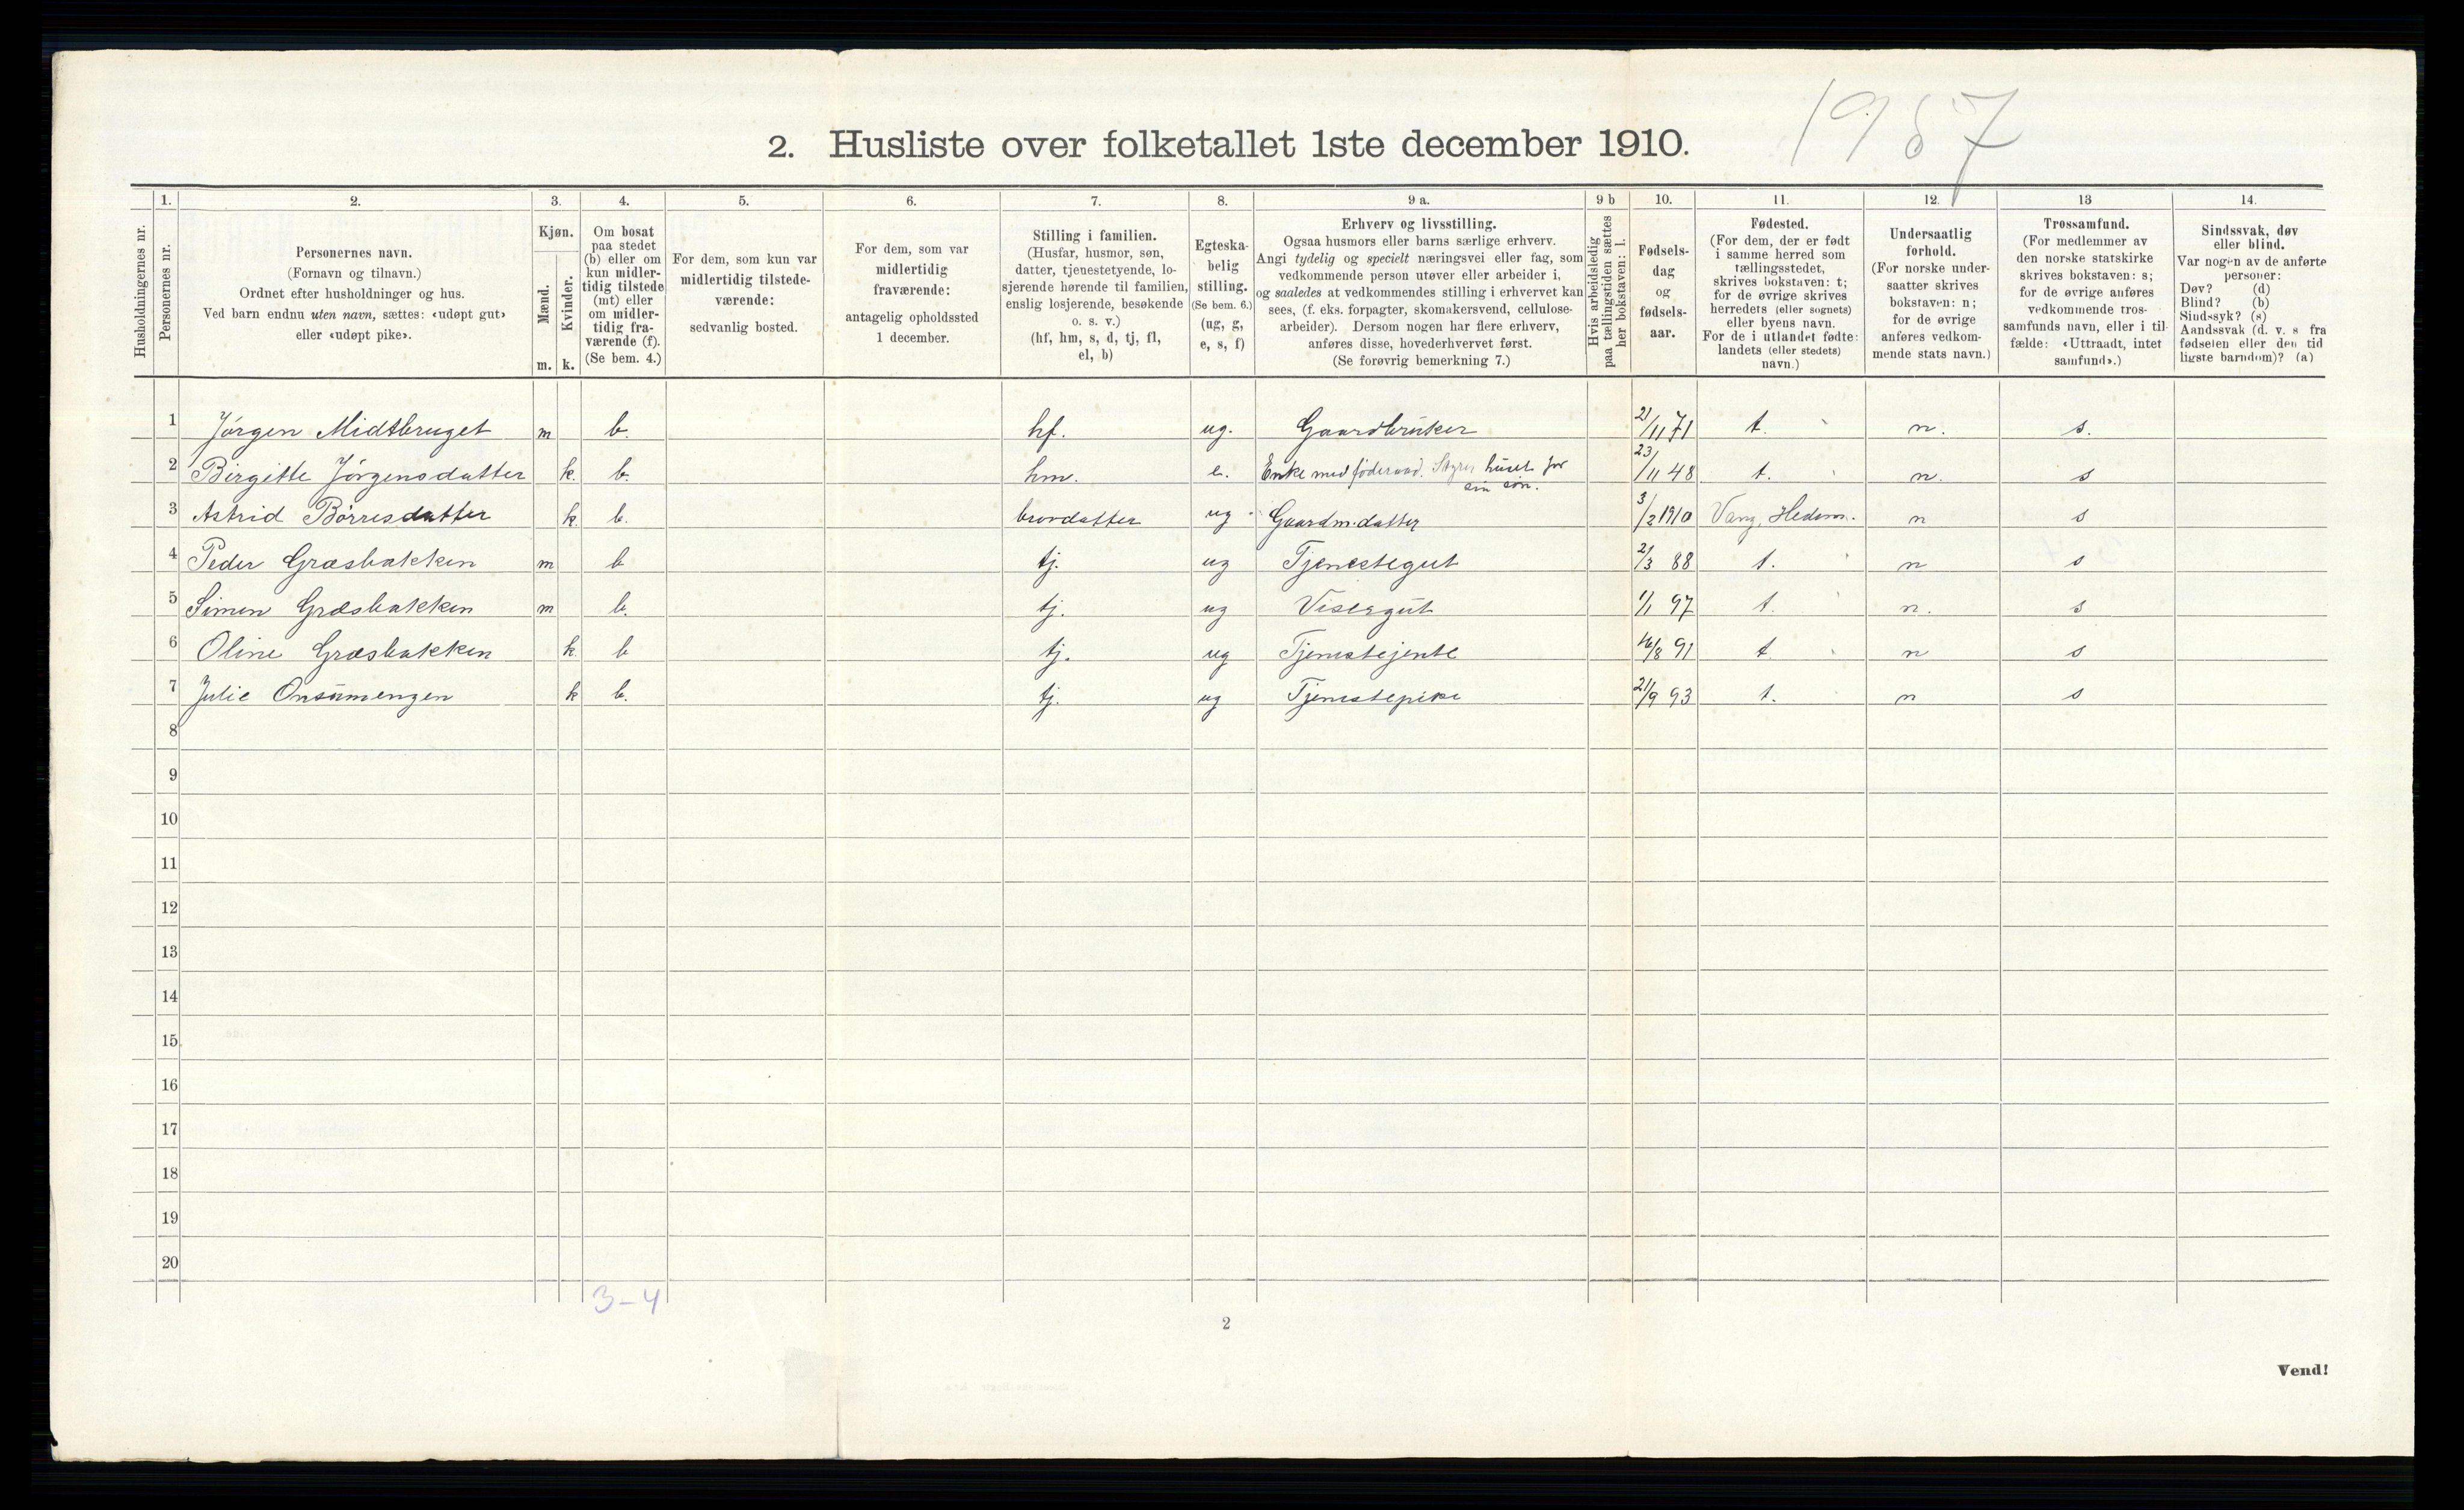 1987
2. Husliste over folketallet 1ste december 1910.
1. 2. 3. 4. 5. 6. 7. 8. 9 a. 9 b 10. 11. 12. 13 14.
Husholdningernes nr.
Personernes nr.
Personernes navn.
(Fornavn og tilnavn.)
Ordnet efter husholdninger og hus.
Ved barn endnu uten navn, sættes: «udøpt gut»
eller «udøpt pike».
Kjøn.
Mænd.
Kvinder.
m. k.
Om bosat
paa stedet
(b) eller om
kun midler-
tidig tilstede
(mt) eller
om midler-
tidig fra-
værende (f).
(Se bem. 4.)
For dem, som kun var
midlertidig tilstede-
værende:
sedvanlig bosted.
For dem, som var
midlertidig
fraværende:
antagelig opholdssted
1 december.
Stilling i familien.
(Husfar, husmor, søn,
datter, tjenestetyende, lo-
sjerende hørende til familien,
enslig losjerende, besøkende
o. s. v.)
(hf, hm, s, d, tj, fl,
el, b)
Egteska-
belig
stilling.
(Se bem. 6.)
(ug, g,
e, s, f)
Erhverv og livsstilling.
Ogsaa husmors eller barns særlige erhverv.
Angi tydelig og specielt næringsvei eller fag, som
vedkommende person utøver eller arbeider i,
og saaledes at vedkommendes stilling i erhvervet kan
sees, (f. eks. forpagter, skomakersvend, cellulose-
arbeider). Dersom nogen har flere erhverv,
anføres disse, hovederhvervet først.
(Se forøvrig bemerkning 7.)
Hvis arbeidsledig
paa tællingstiden sættes
her bokstaven: l.
Fødsels-
dag
og
fødsels-
aar.
Fødested.
(For dem, der er født
i samme herred som
tællingsstedet,
skrives bokstaven: t;
for de øvrige skrives
herredets (eller sognets)
eller byens navn.
For de i utlandet fødte:
landets (eller stedets)
navn.)
Undersaatlig
forhold.
(For norske under-
saatter skrives
bokstaven: n;
for de øvrige
anføres vedkom-
mende stats navn.)
Trossamfund.
(For medlemmer av
den norske statskirke
skrives bokstaven: s;
for de øvrige anføres
vedkommende tros-
samfunds navn, eller i til-
fælde: «Uttraadt, intet
samfund».)
Sindssvak, døv
eller blind.
Var nogen av de anførte
personer:
Døv? (d)
Blind? (b)
Sindssyk? (s)
Aandssvak (d. v. s fra
fødselen eller den tid
ligste barndom)? (a)
1 Jørgen Midtbruget m b. hf. ug. Gaardbruker 21/11 71 t. n. s.
2 Birgitte Jørgensdatter k. b. hm. e. Enke med føderaad. Styrer huset for
sin søn. 23/11 48 t. n. s
3 Astrid Børresdatter k b. brordatter ug. Gaardm.datter 3/2 1910 Vang, Hedem. n s
4 Peder Græsbakken m b tj. ug Tjenestegut 2/3 88 t. n s
5 Simen Græsbakken m b. tj. ug Visergut 1/1 97 t. n. s
6 Oline Græsbakken k b tj. ug Tjenestejente 16/8 91 t n s
7 Julie Onsumengen k b. tj. ug Tjenestepike 21/9 93 t. n s
8
9
10
11
12
13
14
15
16
17
18
19
20
3-4
2
Vend!